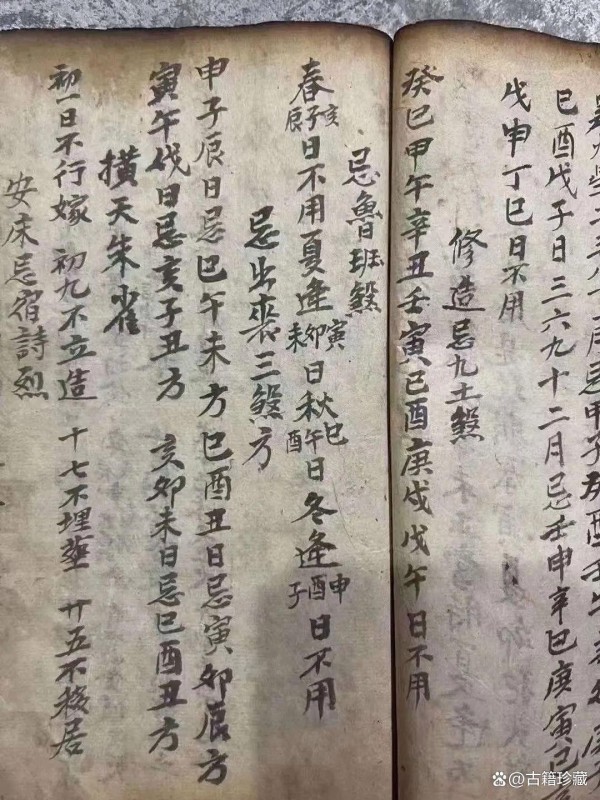 月忌甲子癸酉壬午
巳酉戊子日三六九十二月忌壬申辛巳庚寅己
戊申丁巳日不用
修造忌九土煞
癸巳甲午辛丑壬寅已酉庚戌戊午日不用
忌魯班煞
春亥子辰日不用夏逢寅卯未日秋巳午酉日冬逢申酉子日不用
忌出喪三煞方
申子辰日忌巳午未方巳酉丑日忌寅卯辰方
寅午戌日忌亥子丑方 亥卯未日忌巳酉丑方
橫天朱雀
初一日不行嫁 初九不立造 十七不埋塟 廿五不移居
安床忌宿詩烈
古籍珍藏